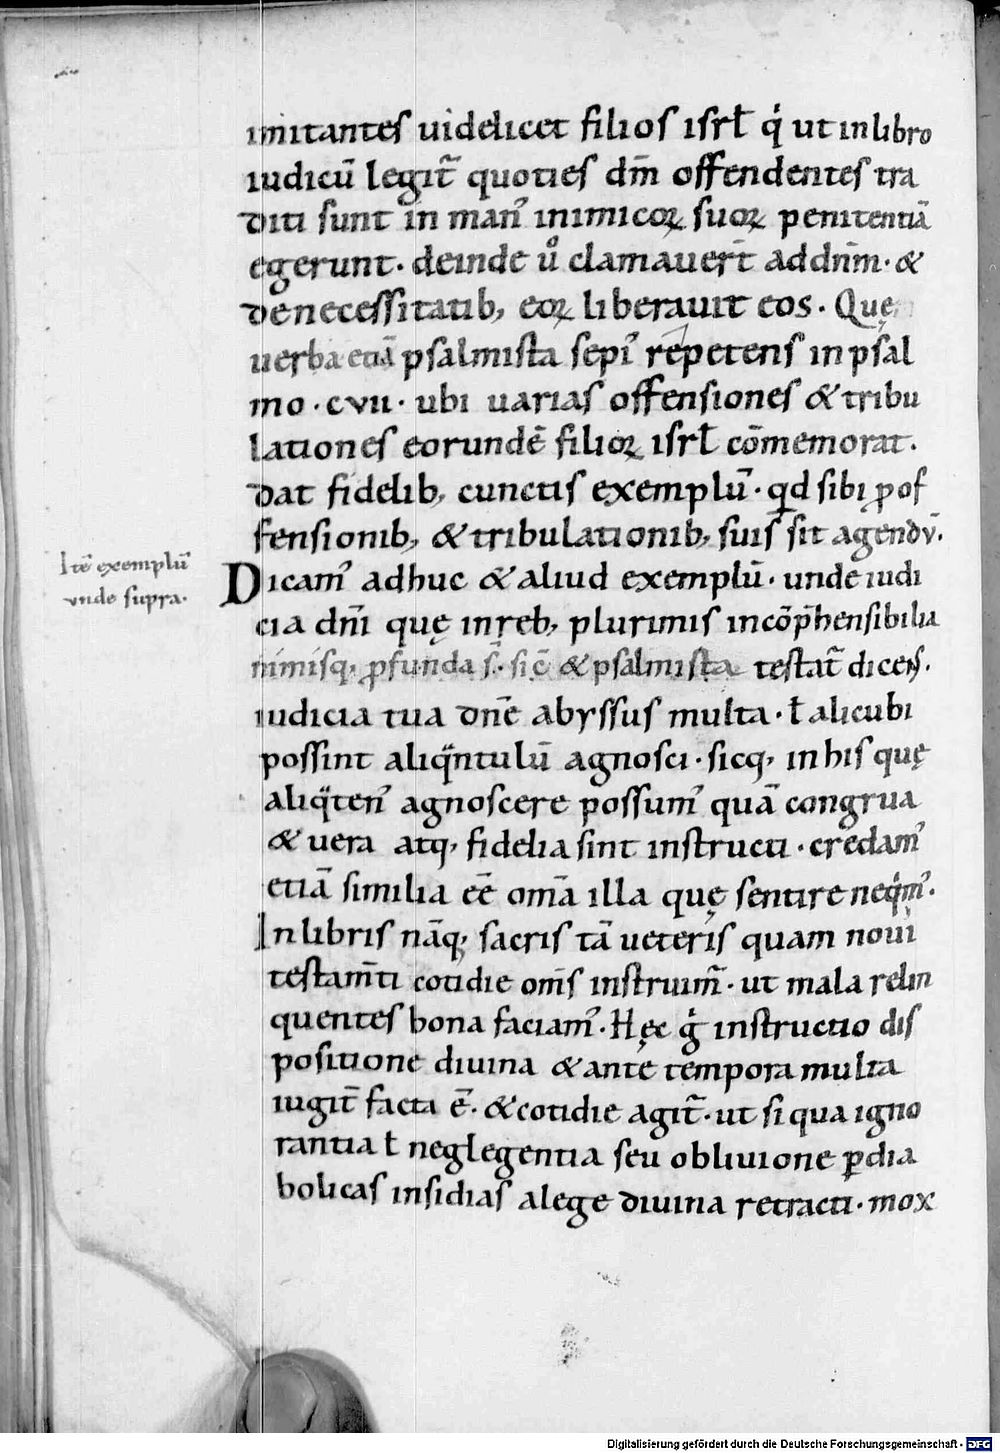 imitantes uidelicet filios isrł q̇ ut in libro
iudicū legit̄ quoties dm̄ offendentes tra
diti sunt in man᾽ inimicoꝝ suoꝝ penitentiā
egerunt. deinde ů clamauer̄t ad dn̄m. &
de necessitatib; eoꝝ liberauit eos. Quę
uerba etiā psalmista sepi᾽ repetens in psal
mo .cvii. ubi uarias offensiones & tribu
lationes eorundē filioꝝ isrł cōmemorat.
dat fidelib; cunctis exemplū. qd sibi ꝓ of
fensionib; & tribulationib; suis sit agendū.
Itē exemplū
unde supra.
Dicam᾽ adhuc & aliud exemplū. unde iudi
cia dn̄i quę in reb; plurimis incōp̄hensibilia
nimisq; ꝓfunda s̄. sic̄ & psalmista testat̄ dicens.
iudicia tua dn̄e abyssus multa. ł alicubi
possint aliqͣntulū agnosci. sicq; in his quę
aliqͣten᾽ agnoscere possum᾽ quā congrua
& uera atq; fidelia sint instructi. credam᾽
etiā similia eē om̄a illa quę sentire neqͥm᾽.
In libris nāq; sacris tā ueteris quam noui
testam̄ti cotidie om̄s instruim᾽. ut mala relin
quentes bona faciam᾽. Hęc ġ instructio dis
positione diuina & ante tempora multa
iugit̄ facta ē. & cotidie agit̄. ut si qua igno
rantia ł neglegentia seu obliuione ꝑ dia
bolicas insidias a lege diuina retracti. mox
Digitalisierung gefördert durch die Deutsche Forschungsgemeinschaft - DFG